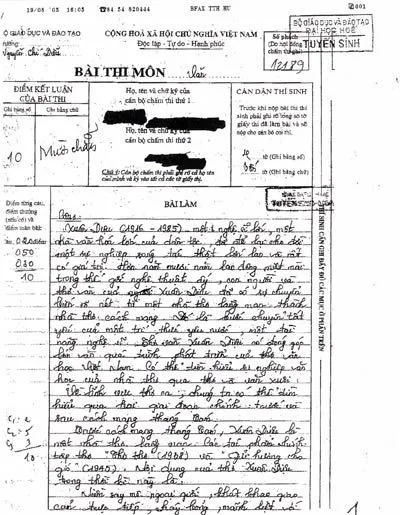 19/08 '03 16:05 ☎84 54 820444 BFAX TTH HU 001
Ộ GIÁO DỤC VÀ ĐÀO TẠO
CỘNG HOÀ XÃ HỘI CHỦ NGHĨA VIỆT NAM
Độc tập - Tự do - Hạnh phúc
BỘ GIÁO DỤC VÀ ĐÀO TẠO
ĐẠI HỌC HUẾ
TUYỂN SINH
Số phách
(Do hội đồng
chấm thi ghi)
12189
BÀI THI MÔN Văn
ĐIỂM KẾT LUẬN
CỦA BÀI THI
Ghi bằng số
Ghi bằng chữ
10
Mười
Họ, tên và chữ ký của
cán bộ chấm thi thứ 1
Họ, tên và chữ ký của
cán bộ chấm thi thứ 2
Chú ý: Cán bộ chấm thi phải ghi rõ họ tên
của mình và ký vào tất cả các tờ giấy thi.
CĂN DẶN THÍ SINH
Trước khi nộp bài thi thí
sinh phải ghi rõ tổng số tờ
giấy thi đã làm bài và số
nộp cho cán bộ coi thi.
tờ (Ghi bằng số)
tờ (Ghi bằng chữ)
Điểm từng câu,
điểm thưởng
(nếu có) và
điểm toàn bài:
050
10
BÀI LÀM
TUYỂN SINH
Xuân Diệu (1916 - 1985), một nghệ sĩ lớn, một
nhà văn hóa lớn của dân tộc, đã để lại cho đời
một sự nghiệp sáng tác thật lớn lao và rất
có giá trị. Hơn năm mươi năm lao động miệt mài
trong thế giới nghệ thuật ấy, con người và
thơ văn của nghệ sĩ Xuân Diệu đã có sự chuyển
biến rõ nét từ một nhà thơ lãng mạn thành
nhà thơ cách mạng. Đó là bước chuyển tất
yếu của một trí thức yêu nước, một tài
năng nghệ sĩ. Xuân Diệu có đóng góp
lớn vào quá trình phát triển của thơ văn
học Việt Nam. Có thể tìm hiểu sự nghiệp văn
học của nhà thơ qua thơ và văn xuôi.
Về lĩnh vực thơ ca, chúng ta có thể tìm
hiểu qua hai giai đoạn chính: trước và
sau cách mạng tháng Tám.
Trước cách mạng tháng Tám, Xuân Diệu là
một nhà thơ lãng mạn. Các tác phẩm chính:
tập thơ "Thơ thơ" (1938) và "Gửi hương cho
gió" (1945). Nội dung của thơ Xuân Diệu
trong thời kỳ này là:
Niềm say mê ngoại giới, khát khao giao
cảm trực tiếp, cháy bỏng, mãnh liệt với